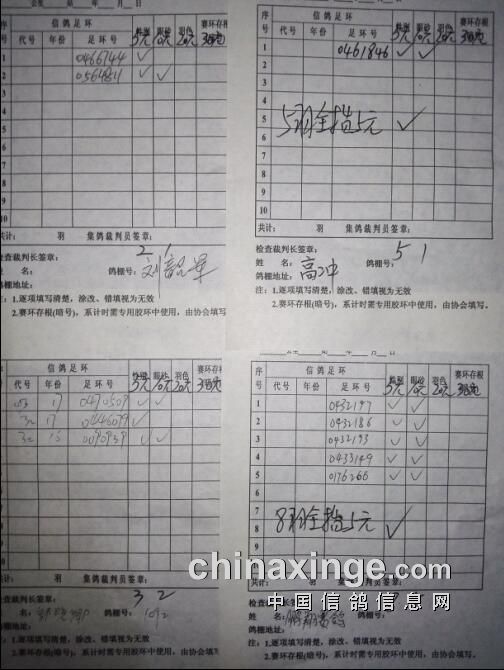 序号 信鸽足环 性别 眼砂 羽色 赛环存根
代号 年份 足环号 5元 10元 20元
1 0466744 ✓ ✓
2 0564841 ✓ ✓
3
4
5
6
7
8
9
10
共计: 羽 集鸽裁判员签章:
检查裁判长签章: 2 1
姓 名: 鸽棚号:
鸽棚地址:
注: 1.逐项填写清楚,涂改、错填视为无效
2.赛环存根(暗号),系计时需专用胶环中使用,由协会填写
序号 信鸽足环 性别 眼砂 羽色 赛环存根
代号 年份 足环号 5元 10元 20元
1 0461846 ✓ ✓
2
3
4
5 5羽全指5元 ✓
6
7
8
9
10
共计: 羽 集鸽裁判员签章:
检查裁判长签章: 5 1
姓 名: 高冲 鸽棚号:
鸽棚地址:
注: 1.逐项填写清楚,涂改、错填视为无效
2.赛环存根(暗号),系计时需专用胶环中使用,由协会填写
信鸽足环 性别 眼砂 羽色 赛环存根
代号 年份 足环号 5元 10元 20元
17 0470509 ✓ ✓
17 0446079 ✓ ✓
共计: 羽 集鸽裁判员签章:
检查裁判长签章: 3 2
姓 名: 鸽棚号:
鸽棚地址:
注: 1.逐项填写清楚,涂改、错填视为无效
2.赛环存根(暗号),系计时需专用胶环中使用,由协会填写
序号 信鸽足环 性别 眼砂 羽色 赛环存根
代号 年份 足环号 5元 10元 20元
1 0432197 ✓ ✓
2 0432186 ✓ ✓
3 0432193 ✓ ✓
4 0433149 ✓ ✓
5 0176266 ✓ ✓
6
7
8 8羽全指5元 ✓
9
chinaxinge.com
中国信鸽信息网
检查裁判长签章:
姓 名:
鸽棚地址:
注: 1.逐项填写清楚,涂改、错填视为无效
2.赛环存根(暗号),系计时需专用胶环中使用,由协会填写